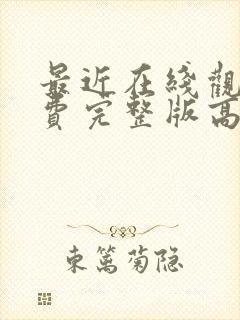 最近在线觀
費完整版高
東篱菊隐